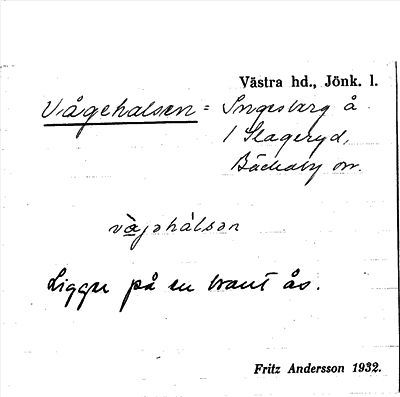 Västra hd., Jönk. l.
Vågehalsen = Ingesberg å
/ Slageryd,
Bäckaby sn.
vàjəhálsən
Ligger på en brant ås.
Fritz Andersson 1932.